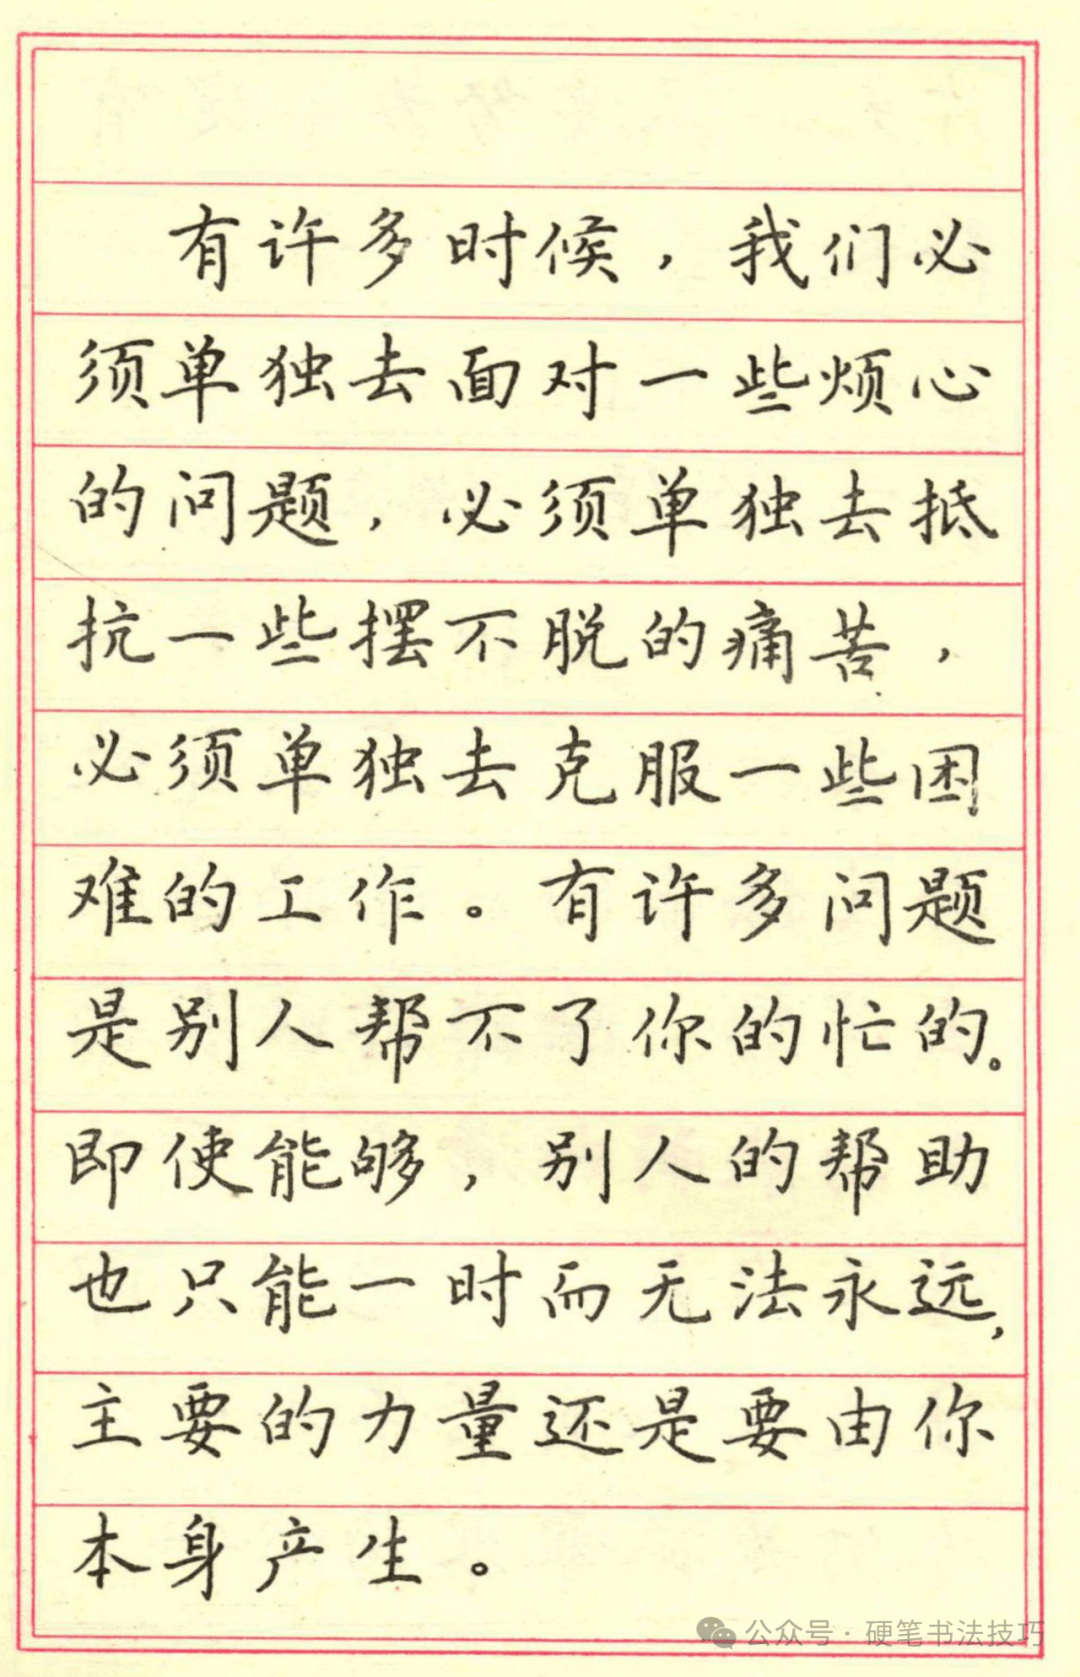 有许多时候，我们必
须单独去面对一些烦心
的问题，必须单独去抵
抗一些摆不脱的痛苦，
必须单独去克服一些困
难的工作。有许多问题
是别人帮不了你的忙的。
即使能够，别人的帮助
也只能一时而无法永远，
主要的力量还是要由你
本身产生。
公众号·硬笔书法技巧